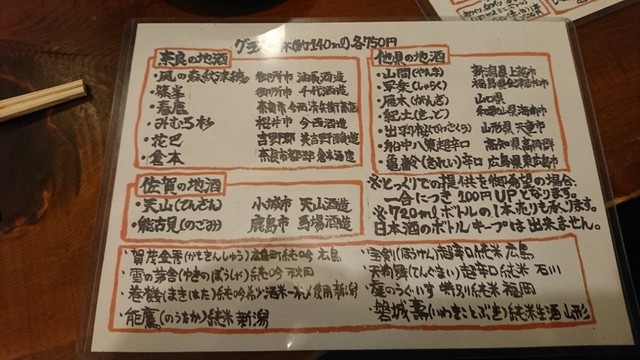 グラス 140mlの各750円
奈良の地酒
・風の森 秋津穂 御所市 油長酒造
・篠峯 御所市 千代酒造
・春鹿 奈良市 今西清兵衛商店
・みむろ杉 桜井市 今西酒造
・花巴 吉野郡 美吉野醸造
・倉本 奈良市都祁 倉本酒造
佐賀の地酒
・天山(てんざん) 小城市 天山酒造
・能古見(のごみ) 鹿島市 馬場酒造
他県の地酒
・山間(やんま) 新潟県上越市
・雁木(がんぎ) 山口県
・紀土(きっど) 和歌山県海南市
・出羽桜(でわざくら) 山形県天童市
・船中八策超辛口 高知県高岡郡
・亀齢(きれい)辛口 広島県東広島市
※とっくりでの提供を御希望の場合、
一合につき 100円UPとなります。
※720mlボトルの1本売りも承ります。
日本酒のボトルキープは出来ません。
・賀茂金秀(かもきんしゅう) 純吟 広島
・雪の茅舎(ゆきのぼうしゃ)純吟 秋田
・巻機(まきはた)純吟 希少酒米一本〆使用 新潟
・能鷹(のうたか)純米 新潟
・宝剣(ほうけん)超辛口純米 広島
・天狗舞(てんぐまい)超辛口純米 石川
・庭のうぐいす 特別純米 福岡
・磐城壽(いわきことぶき)純米生酒 山形